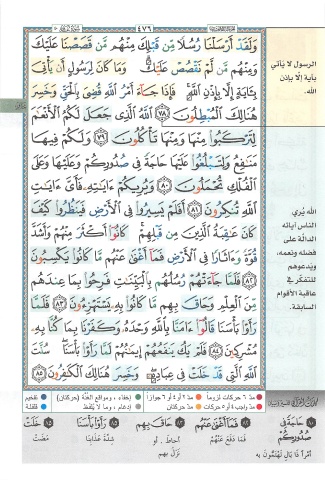 ٤٧٦
وَلَقَدْ أَرْسَلْنَا رُسُلًا مِّن قَبْلِكَ مِنْهُم مَّن قَصَصْنَا عَلَيْكَ
وَمِنْهُم مَّن لَّمْ نَقْصُصْ عَلَيْكَ ۗ وَمَا كَانَ لِرَسُولٍ أَن يَأْتِىَ
بِـَٔايَةٍ إِلَّا بِإِذْنِ ٱللَّهِ ۚ فَإِذَا جَآءَ أَمْرُ ٱللَّهِ قُضِىَ بِٱلْحَقِّ وَخَسِرَ
هُنَالِكَ ٱلْمُبْطِلُونَ ٧٨ ٱللَّهُ ٱلَّذِى جَعَلَ لَكُمُ ٱلْأَنْعَـٰمَ
لِتَرْكَبُوا۟ مِنْهَا وَمِنْهَا تَأْكُلُونَ ٧٩ وَلَكُمْ فِيهَا
مَنَـٰفِعُ وَلِتَبْلُغُوا۟ عَلَيْهَا حَاجَةً فِى صُدُورِكُمْ وَعَلَيْهَا وَعَلَى
ٱلْفُلْكِ تُحْمَلُونَ ٨٠ وَيُرِيكُمْ ءَايَـٰتِهِۦ فَأَىَّ ءَايَـٰتِ
ٱللَّهِ تُنكِرُونَ ٨١ أَفَلَمْ يَسِيرُوا۟ فِى ٱلْأَرْضِ فَيَنظُرُوا۟ كَيْفَ
كَانَ عَـٰقِبَةُ ٱلَّذِينَ مِن قَبْلِهِمْ ۚ كَانُوٓا۟ أَكْثَرَ مِنْهُمْ وَأَشَدَّ
قُوَّةً وَءَاثَارًا فِى ٱلْأَرْضِ فَمَآ أَغْنَىٰ عَنْهُم مَّا كَانُوا۟ يَكْسِبُونَ
٨٢ فَلَمَّا جَآءَتْهُمْ رُسُلُهُم بِٱلْبَيِّنَـٰتِ فَرِحُوا۟ بِمَا عِندَهُم
مِّنَ ٱلْعِلْمِ وَحَاقَ بِهِم مَّا كَانُوا۟ بِهِۦ يَسْتَهْزِءُونَ ٨٣ فَلَمَّا
رَأَوْا۟ بَأْسَنَا قَالُوٓا۟ ءَامَنَّا بِٱللَّهِ وَحْدَهُۥ وَكَفَرْنَا بِمَا كُنَّا بِهِۦ
مُشْرِكِينَ ٨٤ فَلَمْ يَكُ يَنفَعُهُمْ إِيمَـٰنُهُمْ لَمَّا رَأَوْا۟ بَأْسَنَا ۖ سُنَّتَ
ٱللَّهِ ٱلَّتِى قَدْ خَلَتْ فِى عِبَادِهِۦ ۖ وَخَسِرَ هُنَالِكَ ٱلْكَـٰفِرُونَ ٨٥
الرسول لا يأتي
بآية إلا بإذن
الله.
الله يُري
الناس آياته
الدالة على
فضله ونعمه،
ويدعوهم
للتفكر في
عاقبة الأقوام
السابقة.
مدّ ٦ حركات لزوماً
مدّ ٢ أو ٤ أو ٦ جوازاً
إخفاء، ومواقع الغُنَّة (حركتان)
تفخيم
مدّ واجب ٤ أو ٥ حركات
مدّ حركتان
إدغام، وما لا يُلفظ
قلقلة
٨٠ حَاجَةً فِي صُدُورِكُمْ
أمراً ذا بالٍ تهتمُّون به
٨٢ فَمَا أَغْنَى عَنْهُمْ
فما دفع عنهم
٨٣ حَاقَ بِهِم
أحاط، أو نزل بهم
٨٤ رَأَوْا بَأْسَنَا
شدَّة عذابنا
٨٥ خَلَتْ
مَضَتْ